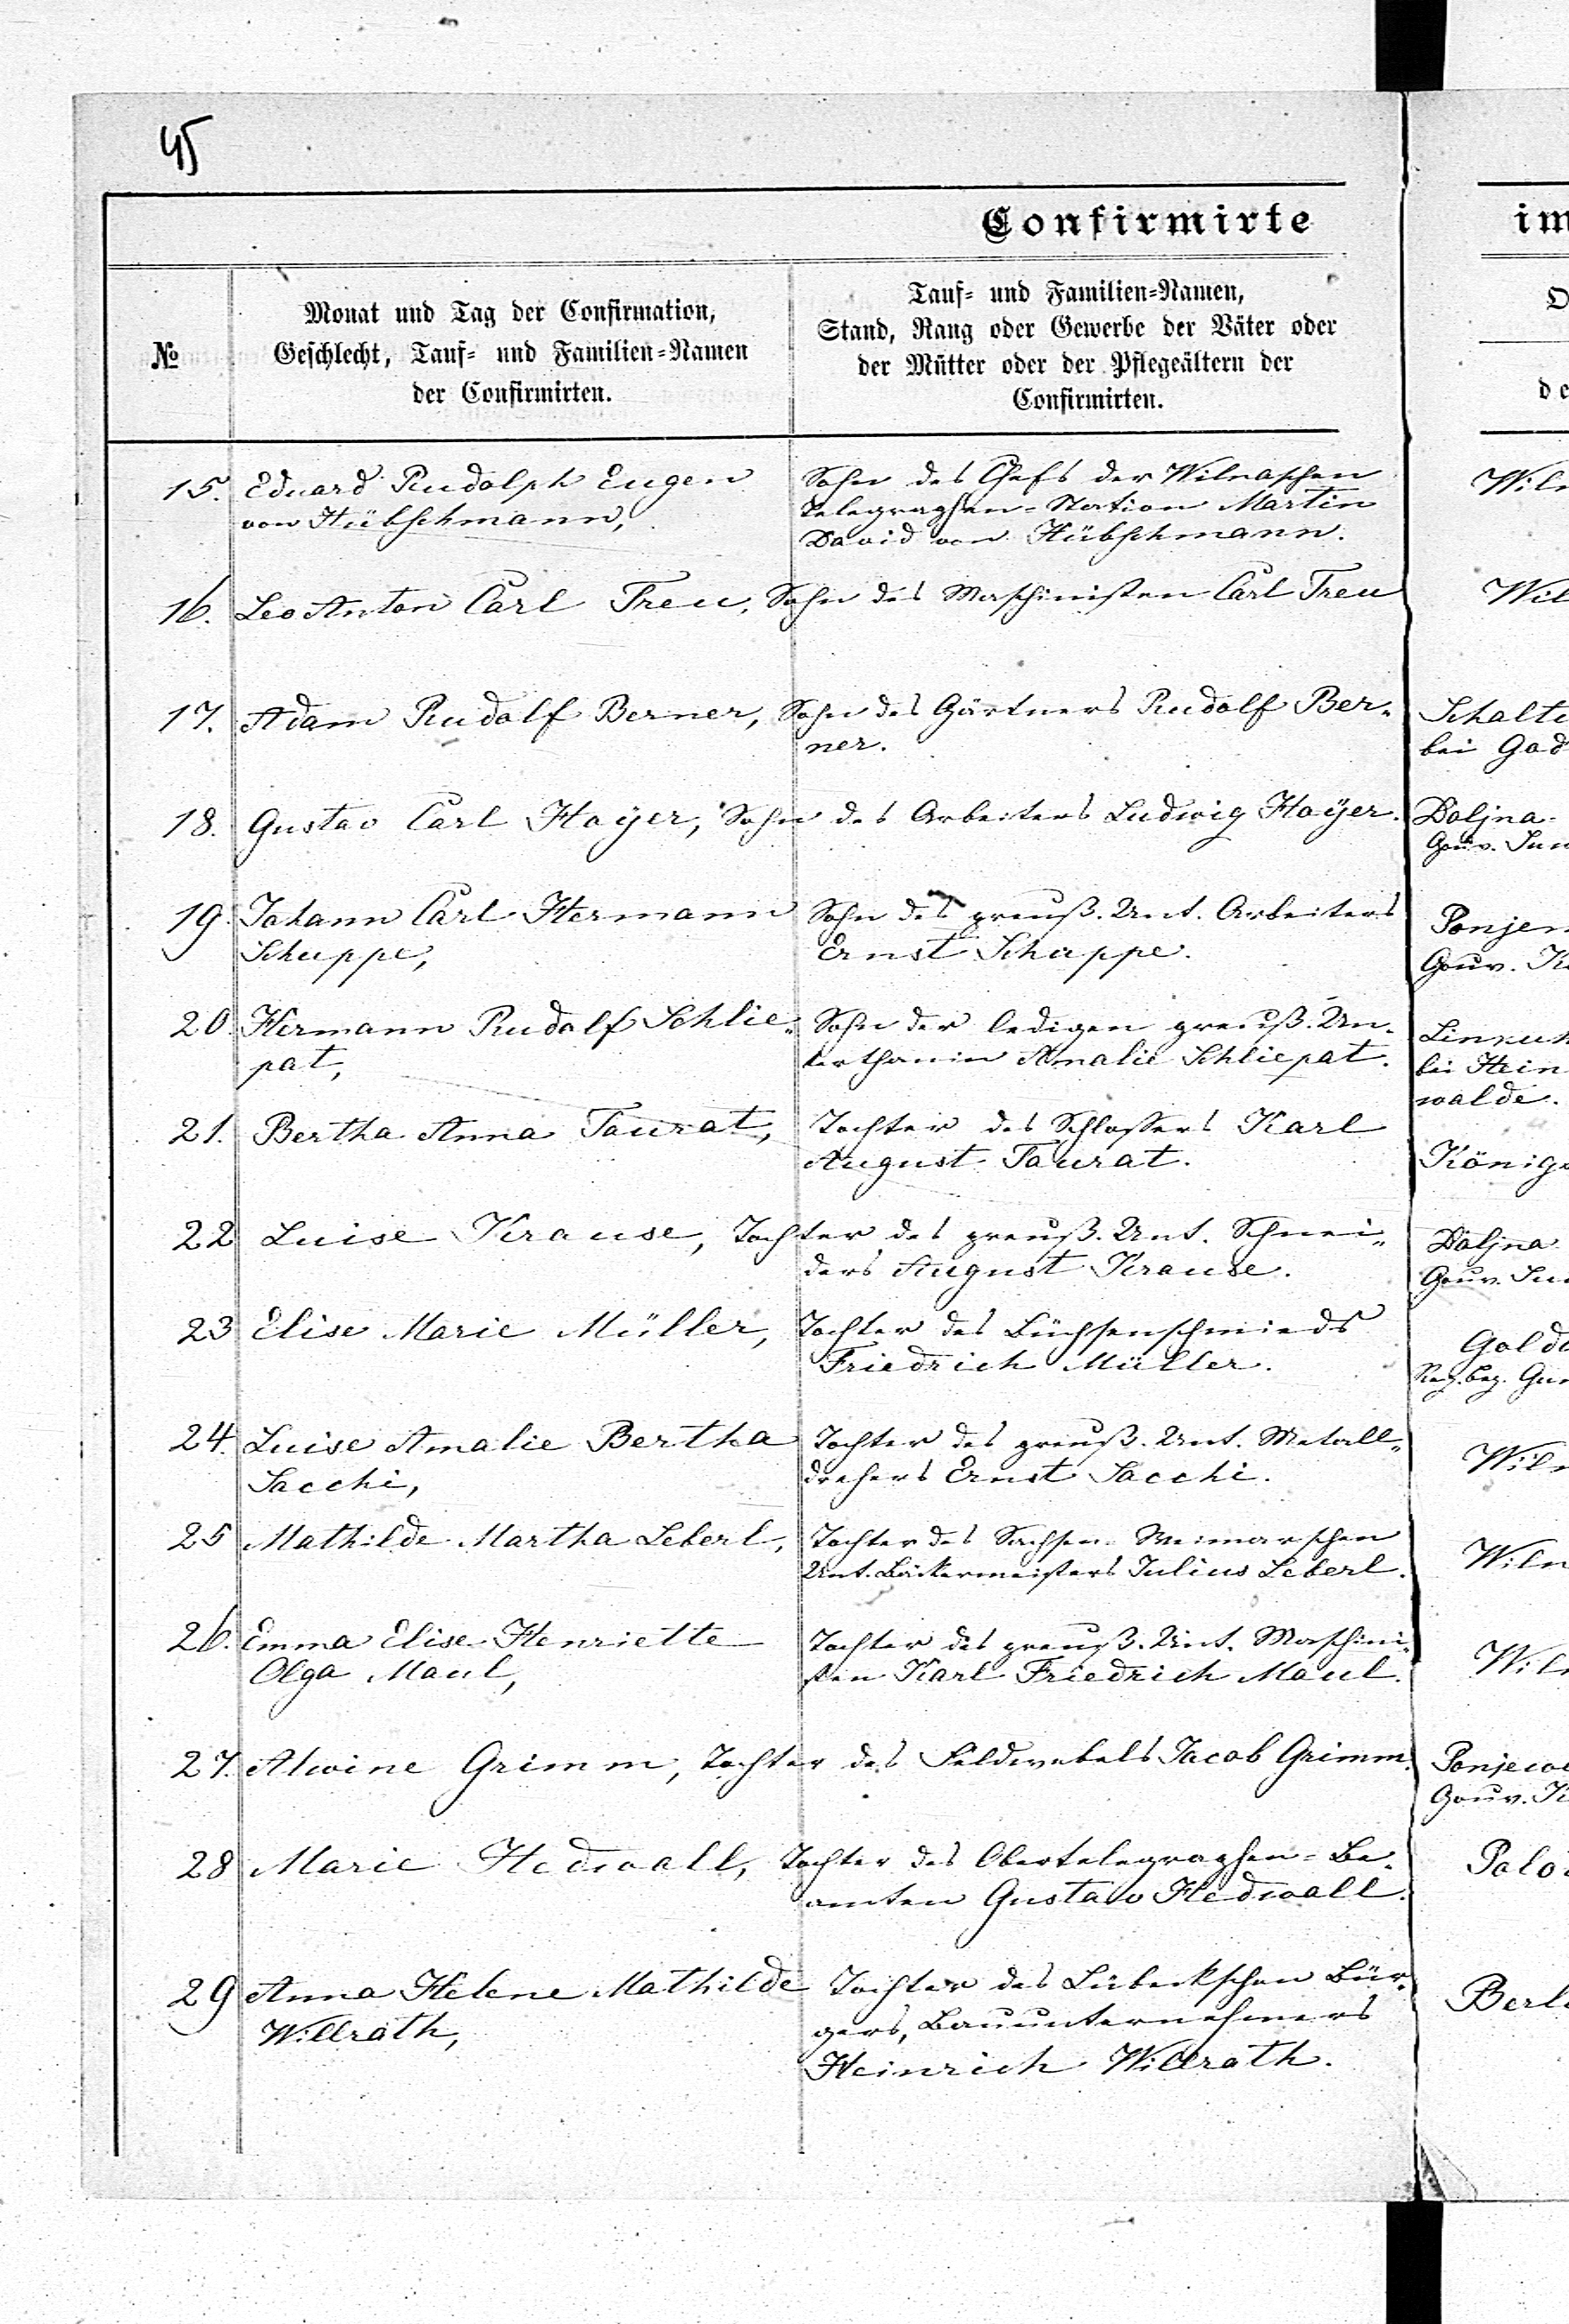 45
Confirmirte
№
Monat und Tag der Confirmation,
Geschlecht, Tauf- und Familien-Namen
der Confirmirten.
Tauf- und Familien-Namen,
Stand, Rang oder Gewerbe der Väter oder
der Mütter oder der Pflegeältern der
Confirmirten.
15. Eduard Rudolph Eugen
von Hübschmann,
Sohn des Chefs der Wilnaschen
Telegraphen-Station Martin
David von Hübschmann.
16. Leo Anton Carl Treu, Sohn des Maschinisten Carl Treu
17. Adam Rudolf Berner, Sohn des Gärtners Rudolf Ber-
ner.
18. Gustav Carl Hoÿer, Sohn des Arbeiters Ludwig Hoÿer.
19. Johann Carl Hermann
Schuppe,
Sohn des preuß. Unt. Arbeiters
Ernst Schuppe.
20. Hermann Rudolf Schlie-
pat,
Sohn der ledigen preuß. Un-
terthanin Amalie Schliepat.
21. Bertha Anna Taurat,
Tochter des Schlossers Karl
August Taurat.
22 Luise Krause, Tochter des preuß. Unt. Schnei-
ders August Krause.
23 Elise Marie Müller, Tochter des Büchsenschmieds
Friedrich Müller.
24. Luise Amalie Bertha
Sacchi,
Tochter des preuß. Unt. Metall-
drehers Ernst Sacchi.
25 Mathilde Martha Leberl,
Tochter des Sachsen-Weimarschen
Unt. Bäckermeisters Julius Leberl.
26. Emma Elise Henriette
Olga Maul,
Tochter des preuß. Unt. Maschini-
sten Karl Friedrich Maul.
27. Alwine Grimm, Tochter des Feldwebels Jacob Grimm.
28 Marie Hedwall, Tochter des Obertelegraphen-Be-
amten Gustav Hedwall.
29 Anna Helene Mathilde
Willrath,
Tochter des Lübeckschen Bür-
gers, Bauunternehmers
Heinrich Willrath.
im
bei
Doljna-
Gouv.
Gouv.
bei Hein
walde.
Doljna
Gouv.
Reg. bez.
Gouv.